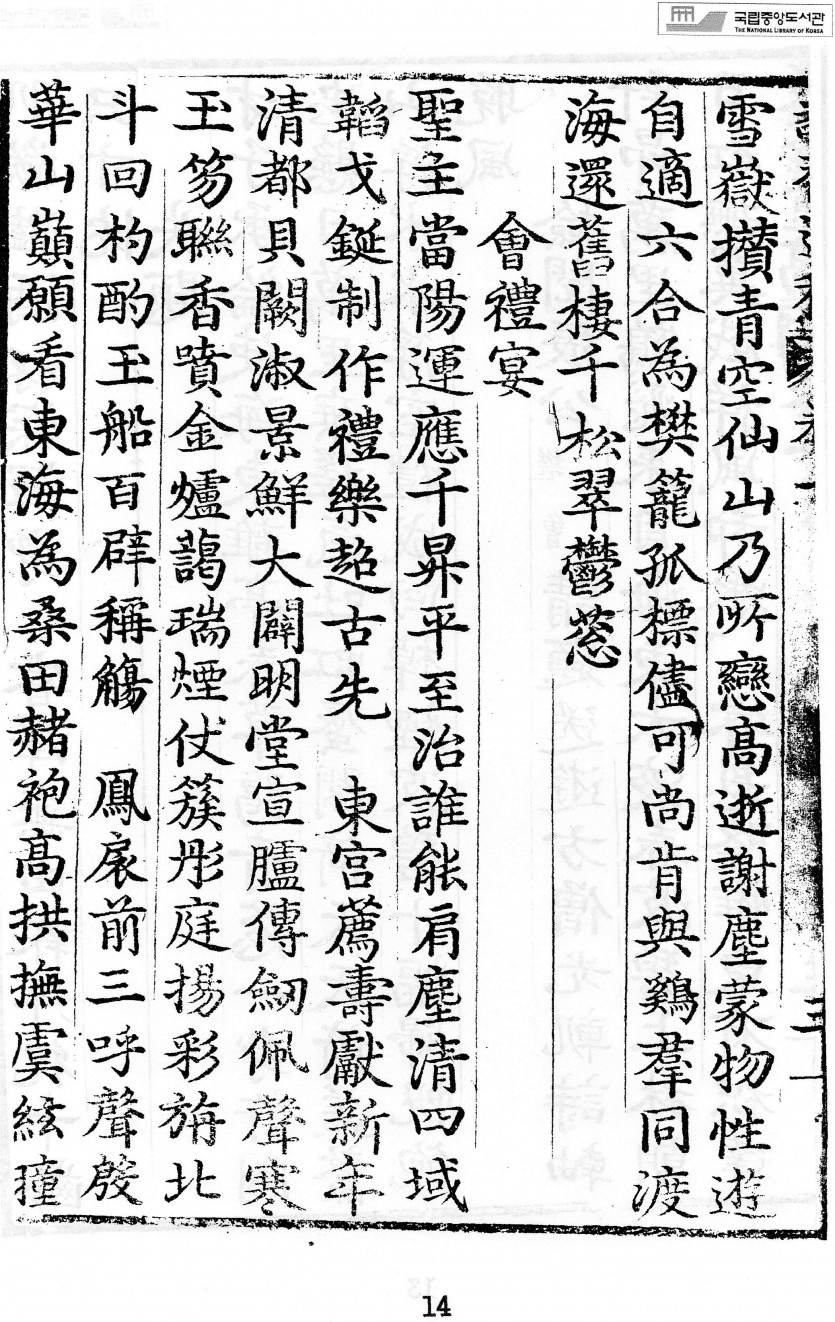 국립중앙도서관
THE NATIONAL LIBRARY OF KOREA
雪嶽攅青空仙山乃所戀高逝謝塵蒙物性遊
自適六合為樊籠孤標儘可尚肯與鷄羣同渡
海還舊棲千松翠鬱葱
會禮宴
聖主當陽運應千昇平至治誰能肩塵清四域
韜戈鋋制作禮樂超古先 東宮薦壽獻新年
清都貝闕淑景鮮大闢明堂宣臚傳劒佩聲寒
玉笏聯香噴金爐藹瑞煙仗簇彤庭揚彩旃北
斗回杓酌玉船百辟稱觴 鳳扆前三呼聲殷
華山巔願看東海為桑田赭袍高拱撫虞絃瓊
14